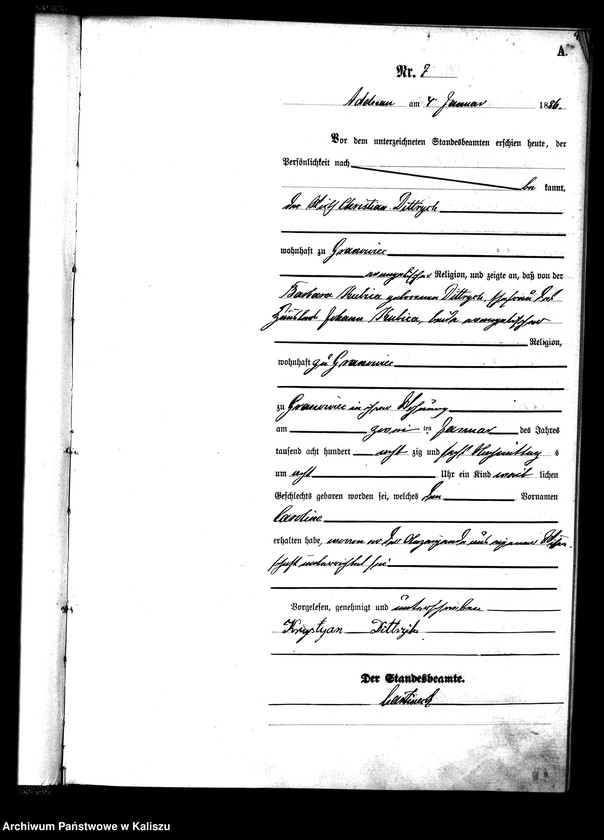 A.
Nr. 7
Adelnau am 4 Januar 1886.
Vor dem unterzeichneten Standesbeamten erschien heute, der
Persönlichkeit nach
be kannt,
der Christian Dittrych
wohnhaft zu Granowiec
evangelischer Religion, und zeigte an, daß von der
Barbara Kubica geborenen Dittrych, Ehefrau des
Johann Kubica, beide evangelischer
Religion,
wohnhaft zu Granowiec
zu Granowiec in ihrer Wohnung
am zwei ten Januar des Jahres
tausend acht hundert acht zig und sechs Nachmittag s
um acht Uhr ein Kind weib lichen
Geschlechts geboren worden sei, welches den Vornamen
Caroline
erhalten habe, wovon er der Anzeigende aus eigener Wissen-
schaft unterrichtet sei
Vorgelesen, genehmigt und unterschrieben
Krystyan Dittrych
Der Standesbeamte.
Archiwum Państwowe w Kaliszu